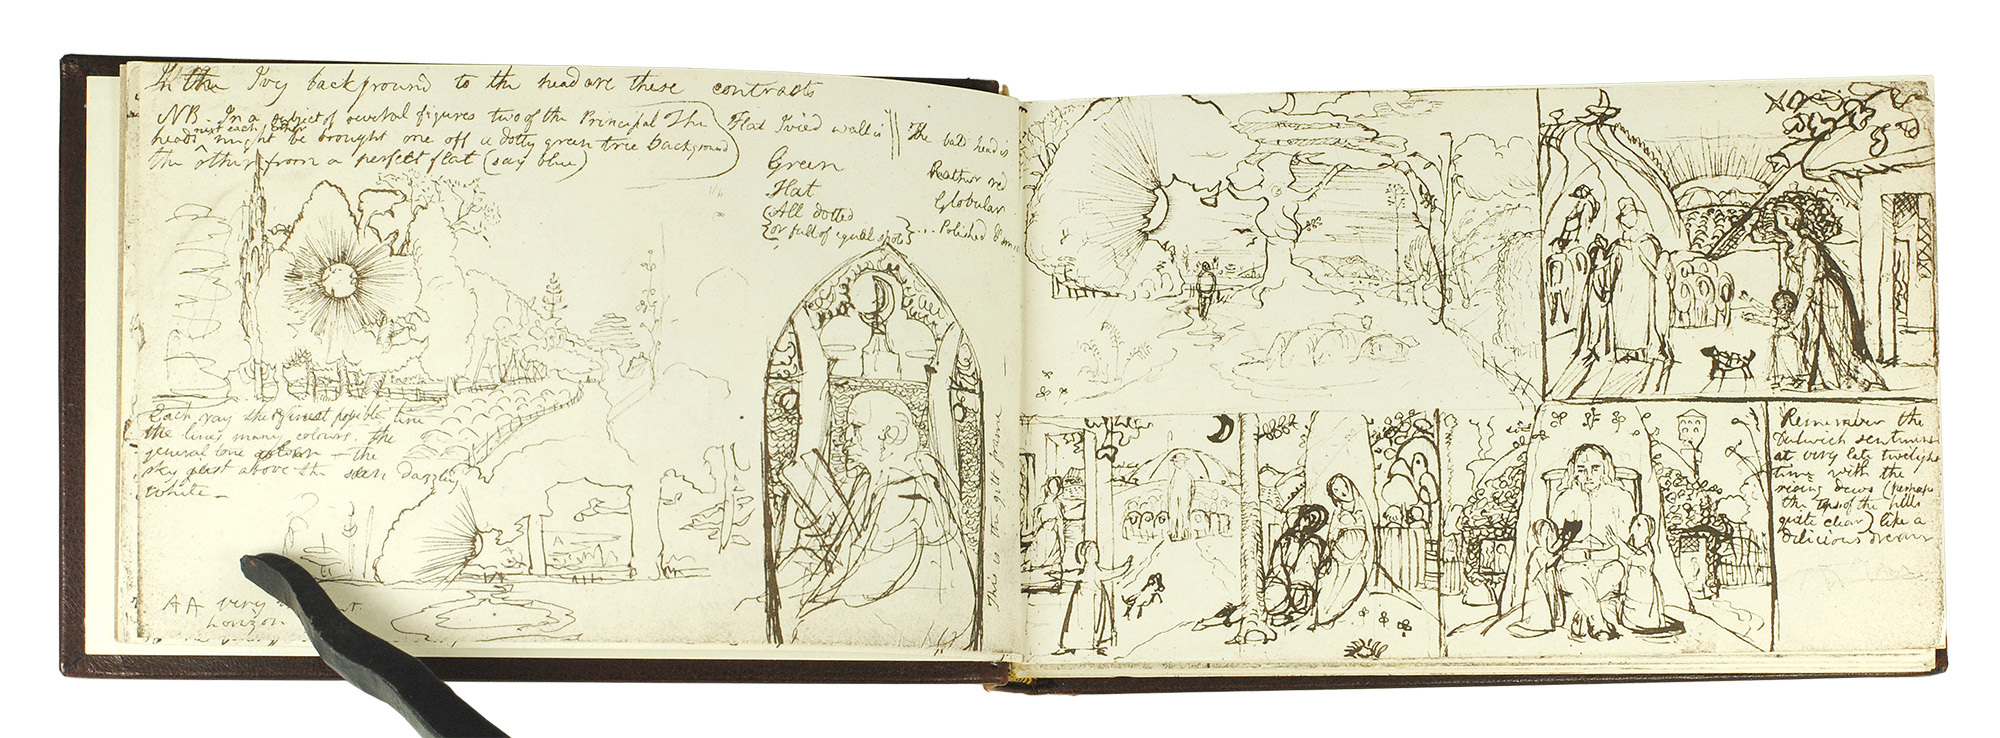 In the Ivy background to the head are these contrasts
NB. In a subject of several figures two of the Principal The
heads next each other might be brought one off a dotty green tree background
the other from a perfect flat (say blue)
Flat Ivied wall is
Green
Flat
All dotted
or full of equal spots
The bald head is
Rather red
Globular
Polished &
Each ray the finest posible line
the lines many colours. the
general tone golden – the
sky just above the dazzling
white –
AA very
horizon
This is the gilt frame
Remember the
Dulwich sentiment
at very late twilight
time with the
rising dews (perhaps
the tops of the hills
quite clear) like a
delicious dream